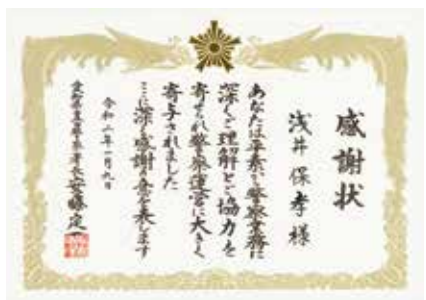 感謝状
浅井保孝様
あなたは平素から警察業務に
深いご理解とご協力を
寄せられ警察運営に大きく
寄与されました
ここに深く感謝の意を表します
令和二年一月九日
愛知県 警察署長 安藤定